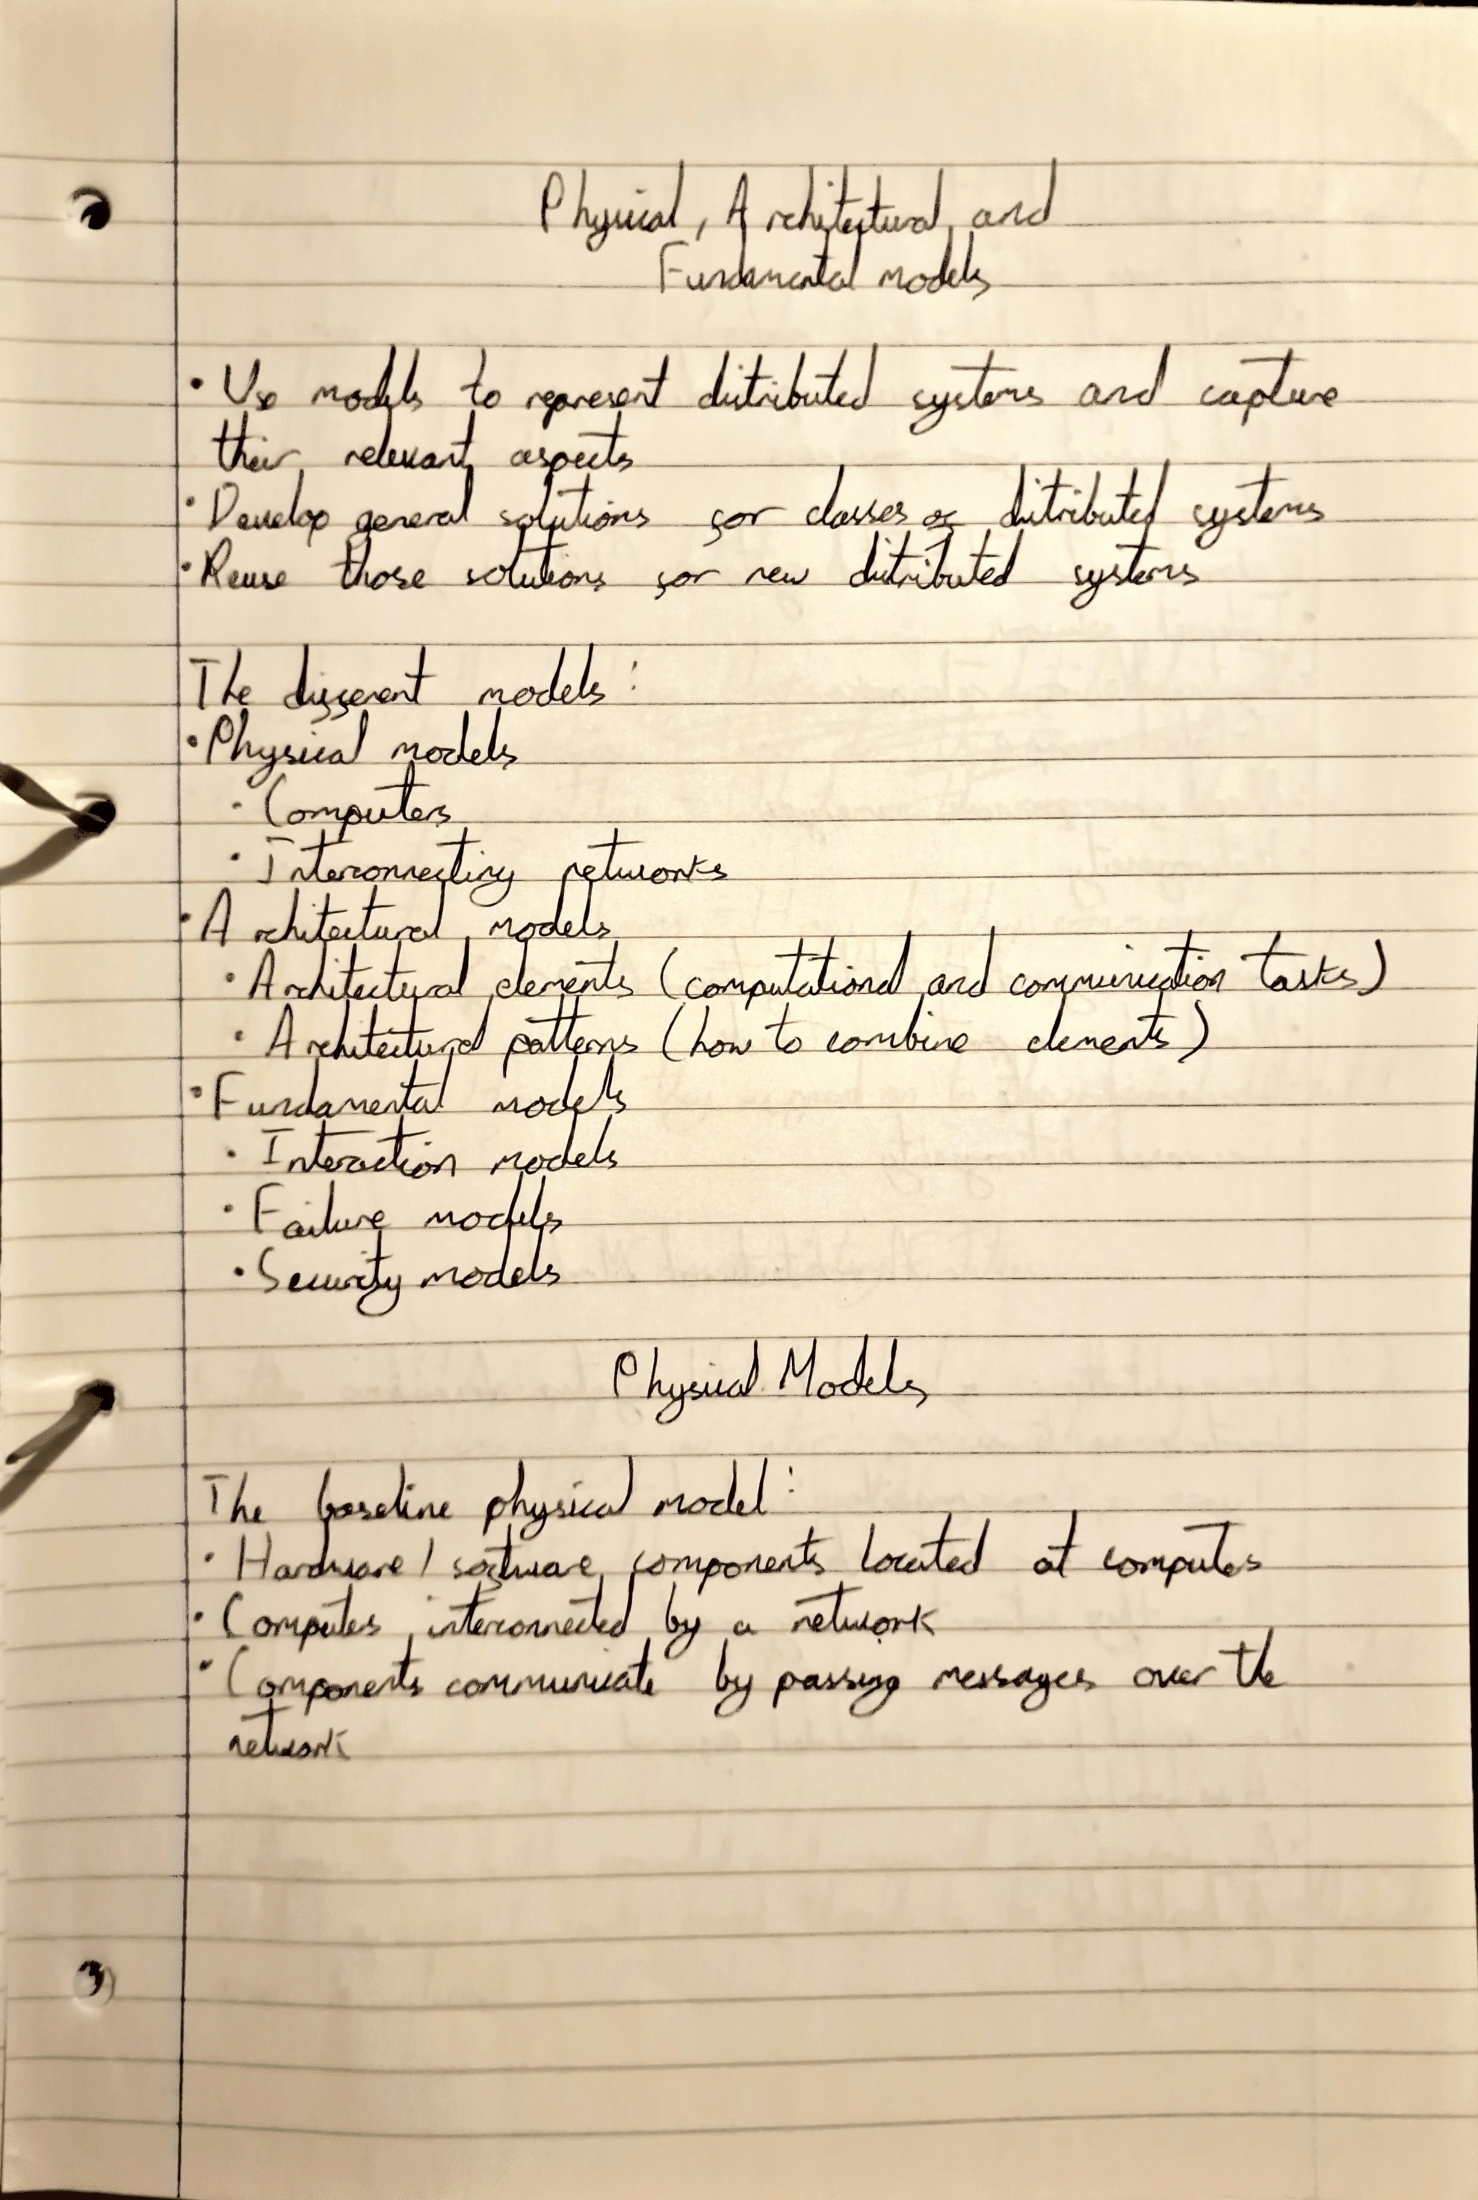 Physical, Architectural and
Fundamental models
• Use models to represent distributed systems and capture
their relevant aspects
• Develop general solutions for classes of distributed systems
• Reuse those solutions for new distributed systems
The different models:
• Physical models
• Computers
• Interconnecting networks
• Architectural models
• Architectural elements (computational and communication tasks)
• Architectural patterns (how to combine elements)
• Fundamental models
• Interaction models
• Failure models
• Security models
Physical Models
The baseline physical model:
• Hardware / software components located at computers
• Computers interconnected by a network
• Components communicate by passing messages over the
network